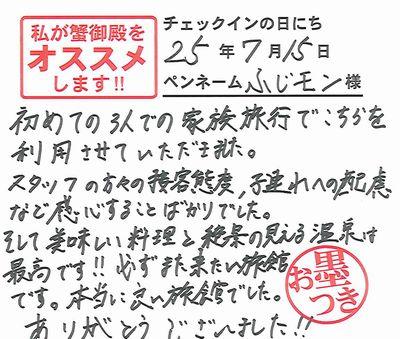 私が蟹御殿を
オススメ
します!!
チェックインの日にち
25年7月15日
ペンネーム ふじモン 様
初めての3人での家族旅行でこちらを
利用させていただきました。
スタッフの方々の接客態度,子連れへの配慮
など感心することばかりでした。
そして美味しい料理と絶景の見える温泉は
最高です!!必ずまた来たい旅館
です。本当に良い旅館でした。
ありがとうございました!!
お墨つき